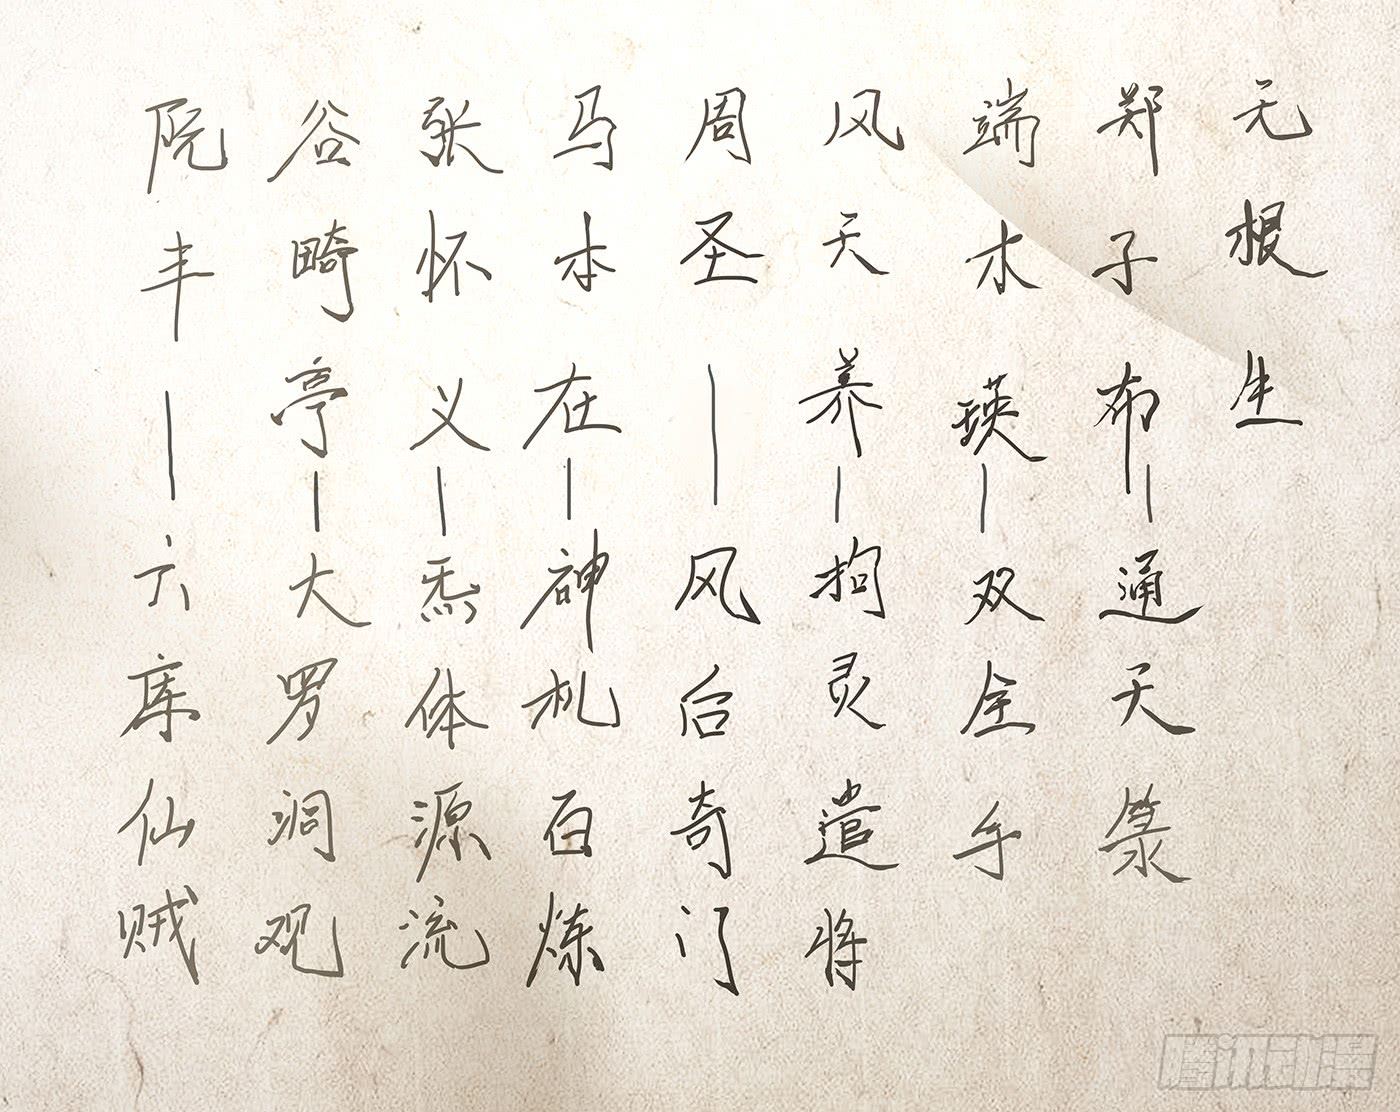 无根生
郑子布—通天箓
端木瑛—双全手
风天养—拘灵遣将
周圣—风后奇门
马本在—神机百炼
张怀义—炁体源流
谷畸亭—大罗洞观
阮丰—六库仙贼
腾讯动漫